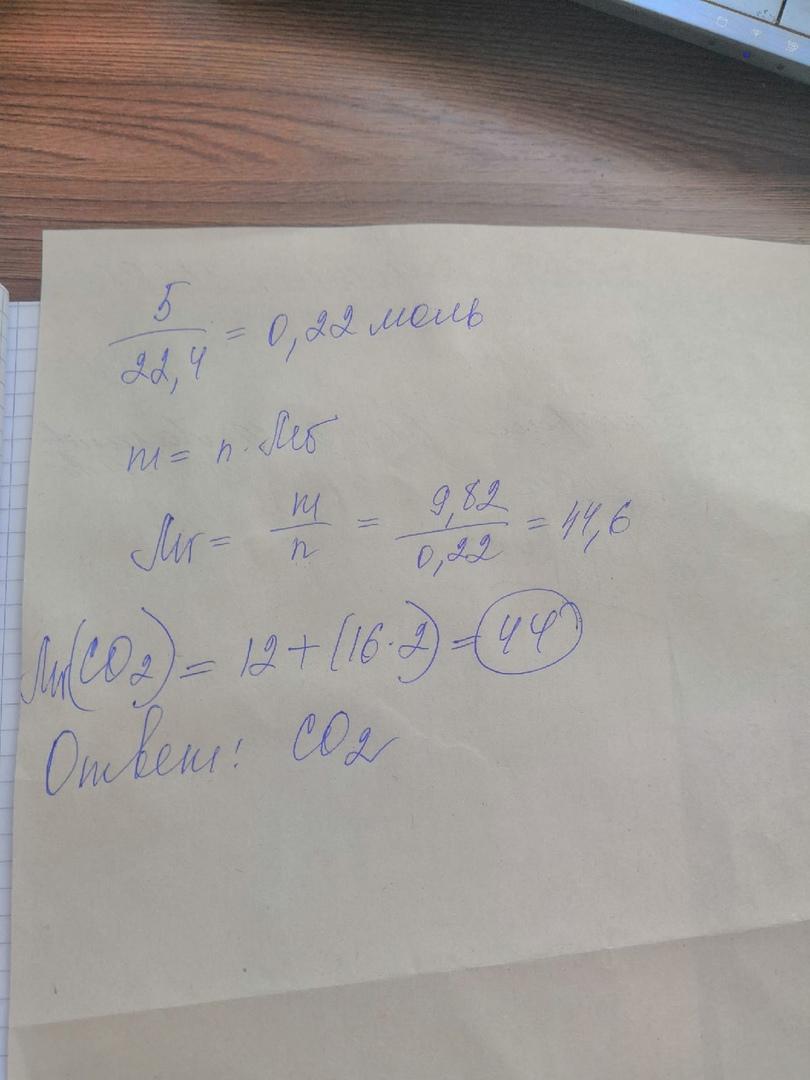 5/22,4 = 0,22 моль
m = n · Mr
Mr = m/n = 9,82/0,22 = 44,6
Mr(CO2) = 12 + (16·2) = 44
Ответ: CO2